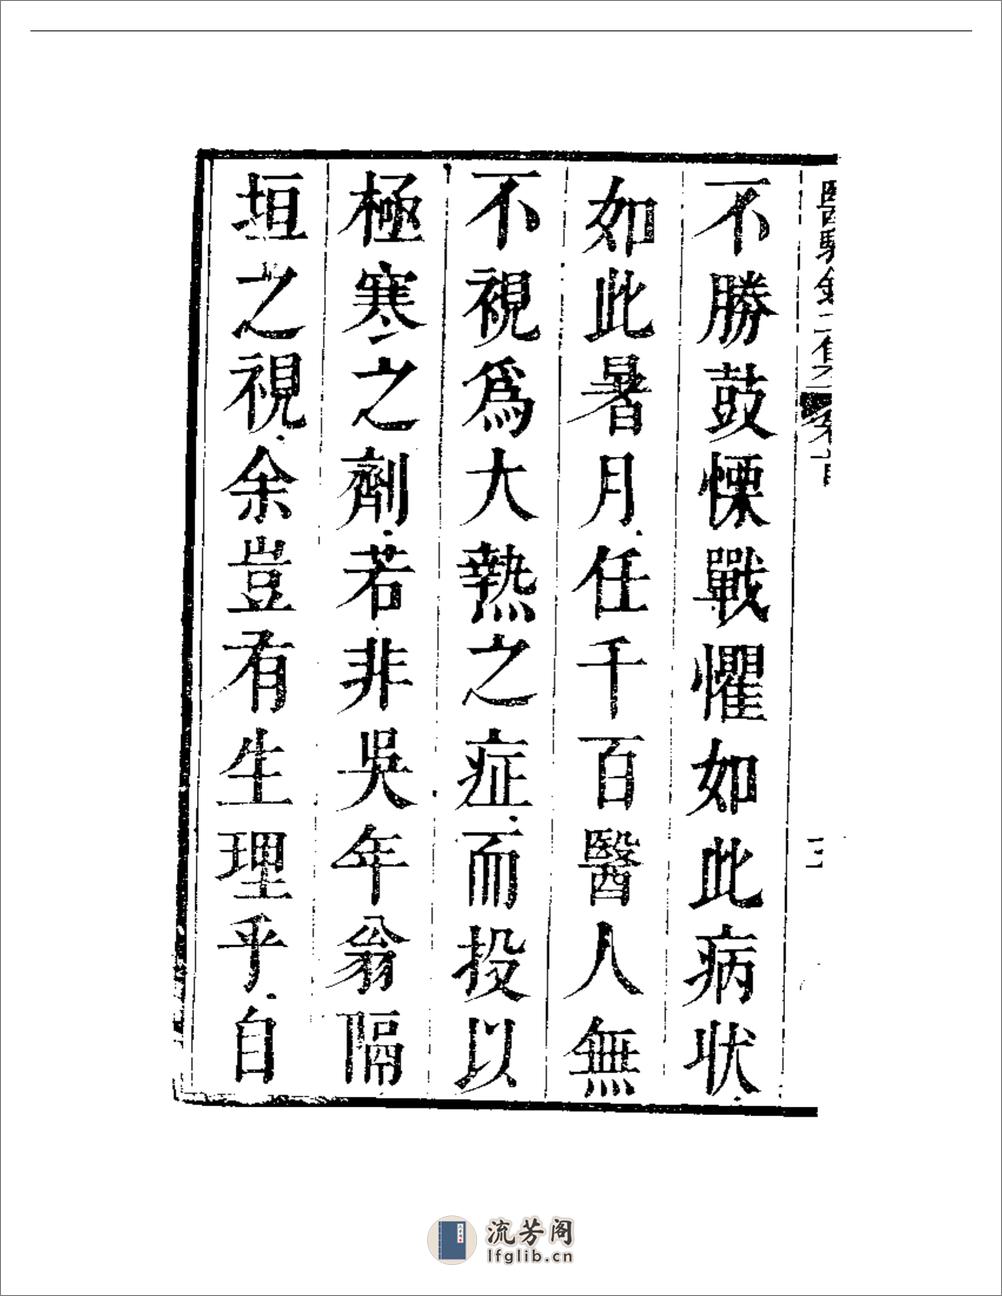 醫驗錄二集
不勝鼓慄戰懼如此病狀
如此暑月任千百醫人無
不視爲大熱之症而投以
極寒之劑若非吳年翁隔
垣之視余豈有生理乎自
流芳阁
lfglib.cn